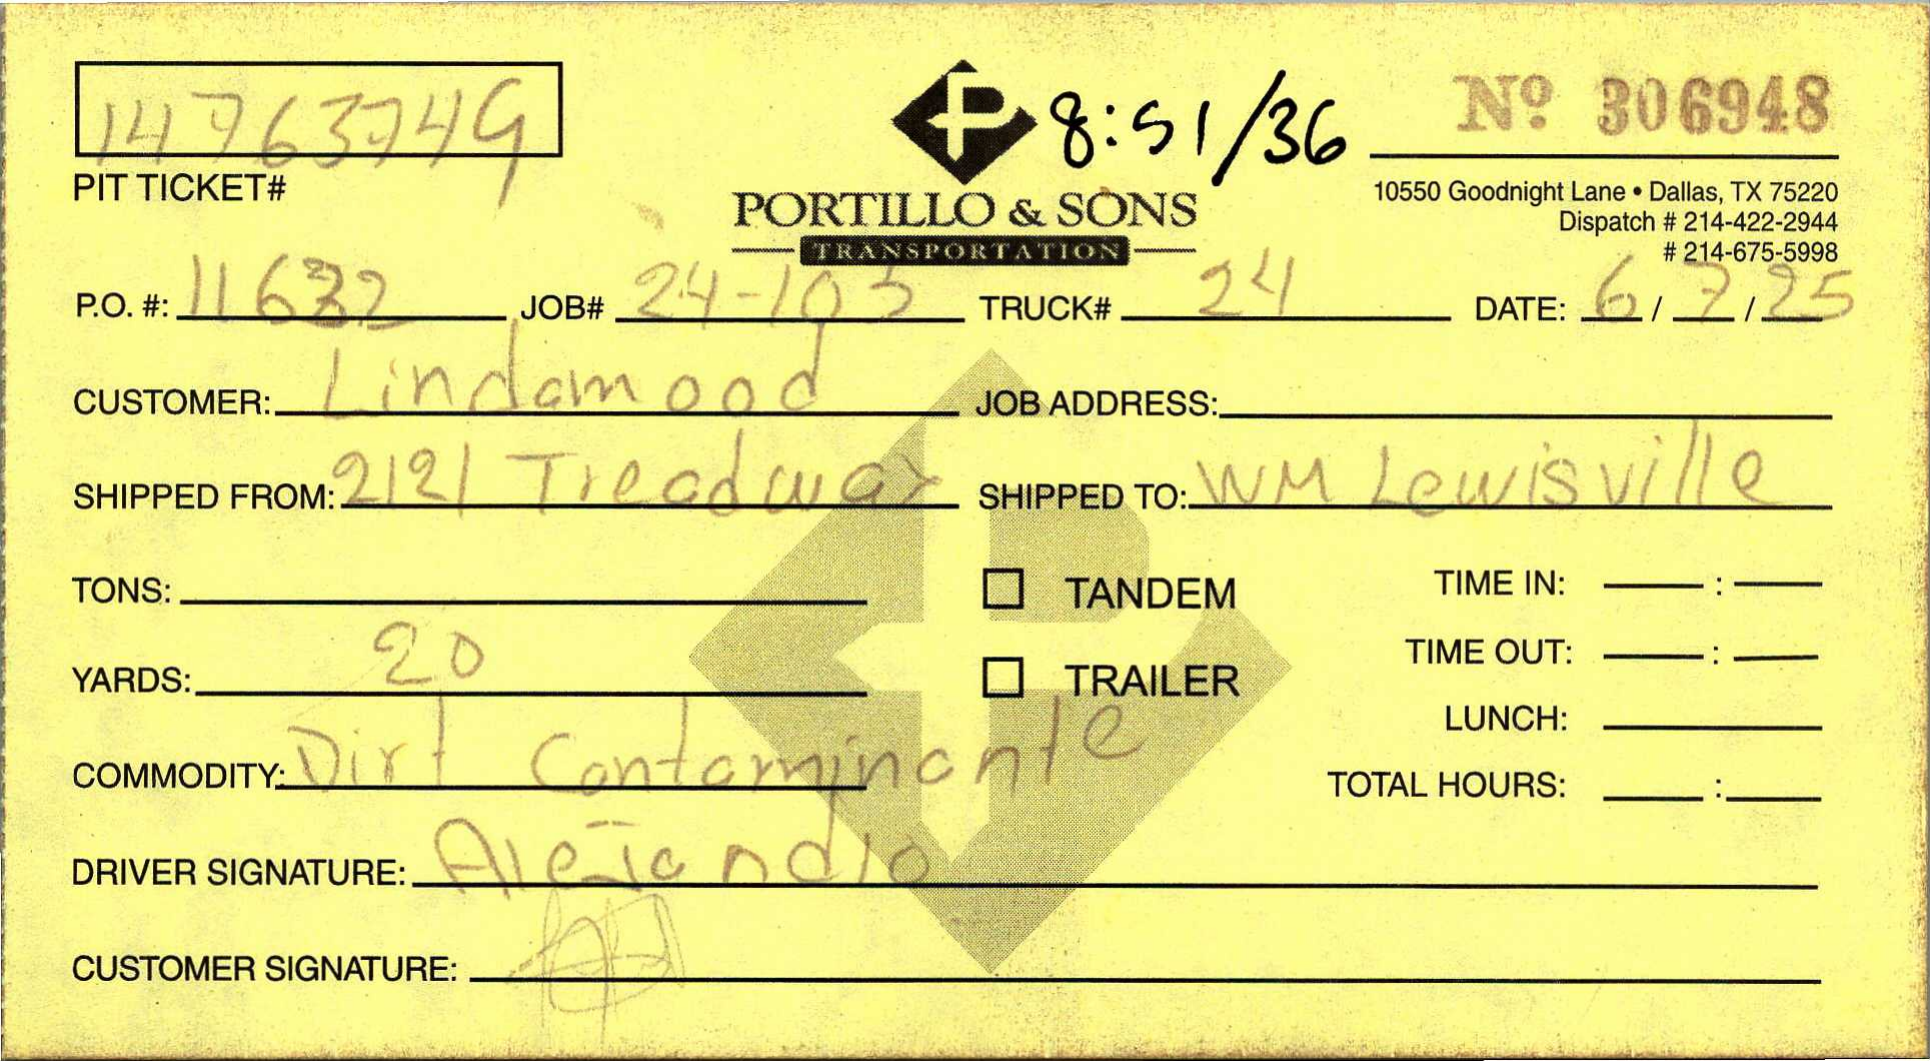 14763749
PIT TICKET#
PORTILLO & SONS
TRANSPORTATION
8:51/36
Nº 306948
10550 Goodnight Lane • Dallas, TX 75220
Dispatch # 214-422-2944
# 214-675-5998
P.O. #: JOB# 24-105 TRUCK# 24 DATE: 6 / 7 / 25
CUSTOMER: Lindamood JOB ADDRESS:
SHIPPED FROM: 2121 Treadway SHIPPED TO: WM Lewisville
TONS: TANDEM TIME IN: :
YARDS: 20 TRAILER TIME OUT: :
LUNCH:
COMMODITY: Dirt Contaminante TOTAL HOURS: :
DRIVER SIGNATURE: Alejandro
CUSTOMER SIGNATURE: